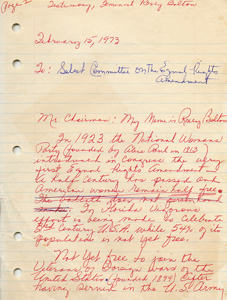 Page 2 Testimony, Feminist Roxcy Bolton
February 15, 1973
To: Select Committee on the Equal Rights
Amendment
Mr. Chairman: My Name is Roxcy Bolton
In 1923 the National Womans
Party (founded by Alice Paul in 1913)
introduced in Congress the very
first Equal Rights Amendment
A half Century has passed and
American women remain half free.
The ballot does not personhood
make. In Florida vigorous
effort is being made to Celebrate
3rd Century U.S.A. while 54% of its
population is not yet free.
Not yet free to join the
Veterans of Foreign Wars of the
United States (founded 1899) after
having served in the U.S. Army